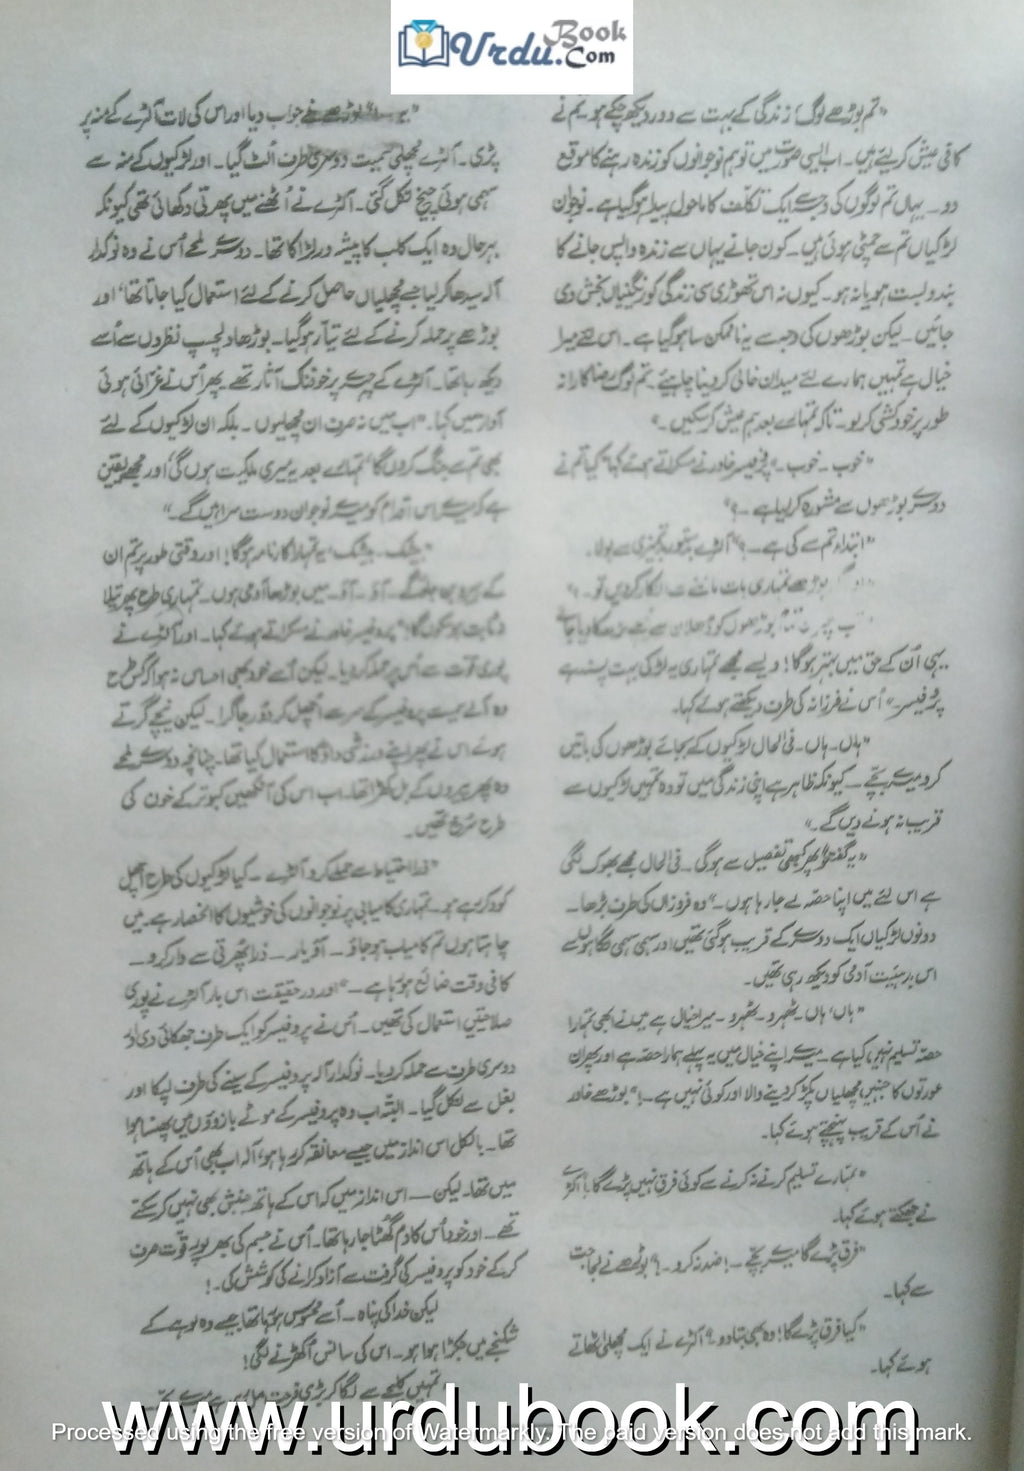 Urdu Book .Com
"تم بوڑھے لوگ زندگی کے بہت سے دور دیکھ چکے ہو۔ تم نے
کافی عیش کرلیئے ہیں۔ اب ایسی صورت میں تو ہم نوجوانوں کو زندہ رہنے کا موقع
دو۔ یہاں تم لوگوں کی وجہ سے ایک تکلف کا ماحول پیدا ہوگیا ہے۔ نوجوان
لڑکیاں تم سے چمٹی ہوئی ہیں۔ کون جانے یہاں سے زندہ واپس جانے کا
بندوبست ہو یا نہ ہو۔ کیوں نہ اس تھوڑی سی زندگی کو رنگینیاں بخش دی
جائیں۔ لیکن بوڑھوں کی وجہ سے یہ ناممکن سا ہوگیا ہے۔ اس لئے میرا
خیال ہے تمہیں ہمارے لئے میدان خالی کردینا چاہیئے۔ تم لوگ رضاکارانہ
طور پر خودکشی کرلو۔ تاکہ تمہارے بعد ہم عیش کرسکیں۔"
"خوب۔ خوب۔" پروفیسر خاور نے مسکراتے ہوئے کہا "کیا تم نے
دوسرے بوڑھوں سے مشورہ کرلیا ہے۔؟"
"ابتداء تم سے کی ہے۔؟" آلڑے بدستور بدتمیزی سے بولا۔
بوڑھے تمہاری بات ماننے سے انکار کردیں تو۔؟"
بوڑھوں کو ڈھلان سے
یہی اُن کے حق میں بہتر ہوگا! ویسے مجھے تمہاری یہ لڑکی بہت پسند ہے
پروفیسر۔" اُس نے فرزانہ کی طرف دیکھتے ہوئے کہا۔
"ہاں۔ ہاں۔ فی الحال لڑکیوں کے بجائے بوڑھوں کی باتیں
کرو میرے بچے۔ کیونکہ ظاہر ہے اپنی زندگی میں تو وہ تمہیں لڑکیوں سے
قریب نہ ہونے دیں گے۔"
"یہ گفتگو پھر کبھی تفصیل سے ہوگی۔ فی الحال مجھے بھوک لگی
ہے اس لئے میں اپنا حصہ لے جارہا ہوں۔" وہ فروزاں کی طرف بڑھا۔
دونوں لڑکیاں ایک دوسرے کے قریب ہوگئی تھیں اور سہمی سہمی نگاہوں سے
اس بدہیئت آدمی کو دیکھ رہی تھیں۔
"ہاں' ہاں۔ ٹھہرو۔ ٹھہرو۔ میرا خیال ہے میں نے ابھی تمہارا
حصہ تسلیم نہیں کیا ہے۔ میرے اپنے خیال میں یہ پہلے ہمارا حصہ ہے اور پھر ان
عورتوں کا جنہیں مچھلیاں پکڑ کر دینے والا اور کوئی نہیں ہے۔!" بوڑھے خاور
نے اُس کے قریب پہنچتے ہوئے کہا۔
"تمہارے تسلیم کرنے نہ کرنے سے کوئی فرق نہیں پڑے گا!" آلڑے
نے جھکتے ہوئے کہا۔
"فرق پڑے گا میرے بچے۔! ضد نہ کرو۔!" بوڑھے نے لجاجت
سے کہا۔
"کیا فرق پڑے گا! وہ بھی بتادو؟" آلڑے نے ایک مچھلی اٹھاتے
ہوئے کہا۔
بوڑھے نے جواب دیا اور اس کی لات آلڑے کے منہ پر
پڑی۔ آلڑے مچھلی سمیت دوسری طرف اُلٹ گیا۔ اور لڑکیوں کے منہ سے
سہمی ہوئی چیخ نکل گئی۔ آلڑے نے اُٹھنے میں پھرتی دکھائی تھی کیونکہ
بہرحال وہ ایک کلب کا پیشہ ور لڑاکا تھا۔ دوسرے لمحے اُس نے وہ نوکدار
آلہ سیدھا کرلیا جسے مچھلیاں حاصل کرنے کے لئے استعمال کیا جاتا تھا' اور
بوڑھے پر حملہ کرنے کے لئے تیار ہوگیا۔ بوڑھا دلچسپ نظروں سے اُسے
دیکھ رہا تھا۔ آلڑے کے چہرے پر خوفناک آثار تھے۔ پھر اُس نے غرّائی ہوئی
آواز میں کہا۔ "اب میں نہ صرف ان مچھلیوں۔ بلکہ ان لڑکیوں کے لئے
بھی تم سے جنگ کروں گا' تمہارے بعد یہ میری ملکیت ہوں گی' اور مجھے یقین
ہے کہ میرے اس اقدام کو میرے نوجوان دوست سراہیں گے۔"
"بیشک۔ بیشک' یہ تمہارا کارنامہ ہوگا! اور وقتی طور پر تم ان
کے ہیرو بن جاؤگے۔ آؤ۔ آؤ۔ میں بوڑھا آدمی ہوں۔ تمہاری طرح پھرتیلا
ثابت ہوسکوں گا!" پروفیسر خاور نے مسکراتے ہوئے کہا۔ اور آلڑے نے
پوری قوت سے اُس پر حملہ کردیا۔ لیکن اُسے خود بھی احساس نہ ہوا کہ کس طرح
وہ آلے سمیت پروفیسر کے سر سے اُچھل کر دور جاگرا۔ لیکن نیچے گرتے
ہوئے اس نے پھر اپنے ورزشی داؤ کا استعمال کیا تھا۔ چنانچہ دوسرے لمحے
وہ پھر پیروں کے بل کھڑا تھا۔ اب اس کی آنکھیں کبوتر کے خون کی
طرح سُرخ تھیں۔
"ذرا احتیاط سے حملے کرو آلڑے۔ کیا لڑکیوں کی طرح اُچھل
کود کر رہے ہو۔ تمہاری کامیابی پر نوجوانوں کی خوشیوں کا انحصار ہے۔ میں
چاہتا ہوں تم کامیاب ہوجاؤ۔ آؤ یار۔ ذرا پھرتی سے وار کرو۔
کافی وقت ضائع ہورہا ہے۔" اور درحقیقت اس بار آلڑے نے پوری
صلاحیتیں استعمال کی تھیں۔ اُس نے پروفیسر کو ایک طرف جھکائی دی اور
دوسری طرف سے حملہ کردیا۔ نوکدار آلہ پروفیسر کے سینے کی طرف لپکا اور
بغل سے نکل گیا۔ البتہ اب وہ پروفیسر کے موٹے بازوؤں میں پھنسا ہوا
تھا۔ بالکل اس انداز میں جیسے معانقہ کر رہا ہو' آلہ اب بھی اُس کے ہاتھ
میں تھا۔ لیکن۔ اس انداز میں کہ اس کے ہاتھ جنبش بھی نہیں کرسکتے
تھے۔ اور خود اُس کا دم گھُٹا جارہا تھا۔ اُس نے جسم کی بھرپور قوت صرف
کرکے خود کو پروفیسر کی گرفت سے آزاد کرانے کی کوشش کی۔!
لیکن خدا کی پناہ۔ اُسے محسوس ہورہا تھا جیسے وہ لوہے کے
شکنجے میں جکڑا ہوا ہو۔ اس کی سانس اُکھڑنے لگی!
تمہیں کلیجے سے لگا کر بڑی فرحت
www.urdubook.com
Processed using the free version of Watermarkly. The paid version does not add this mark.